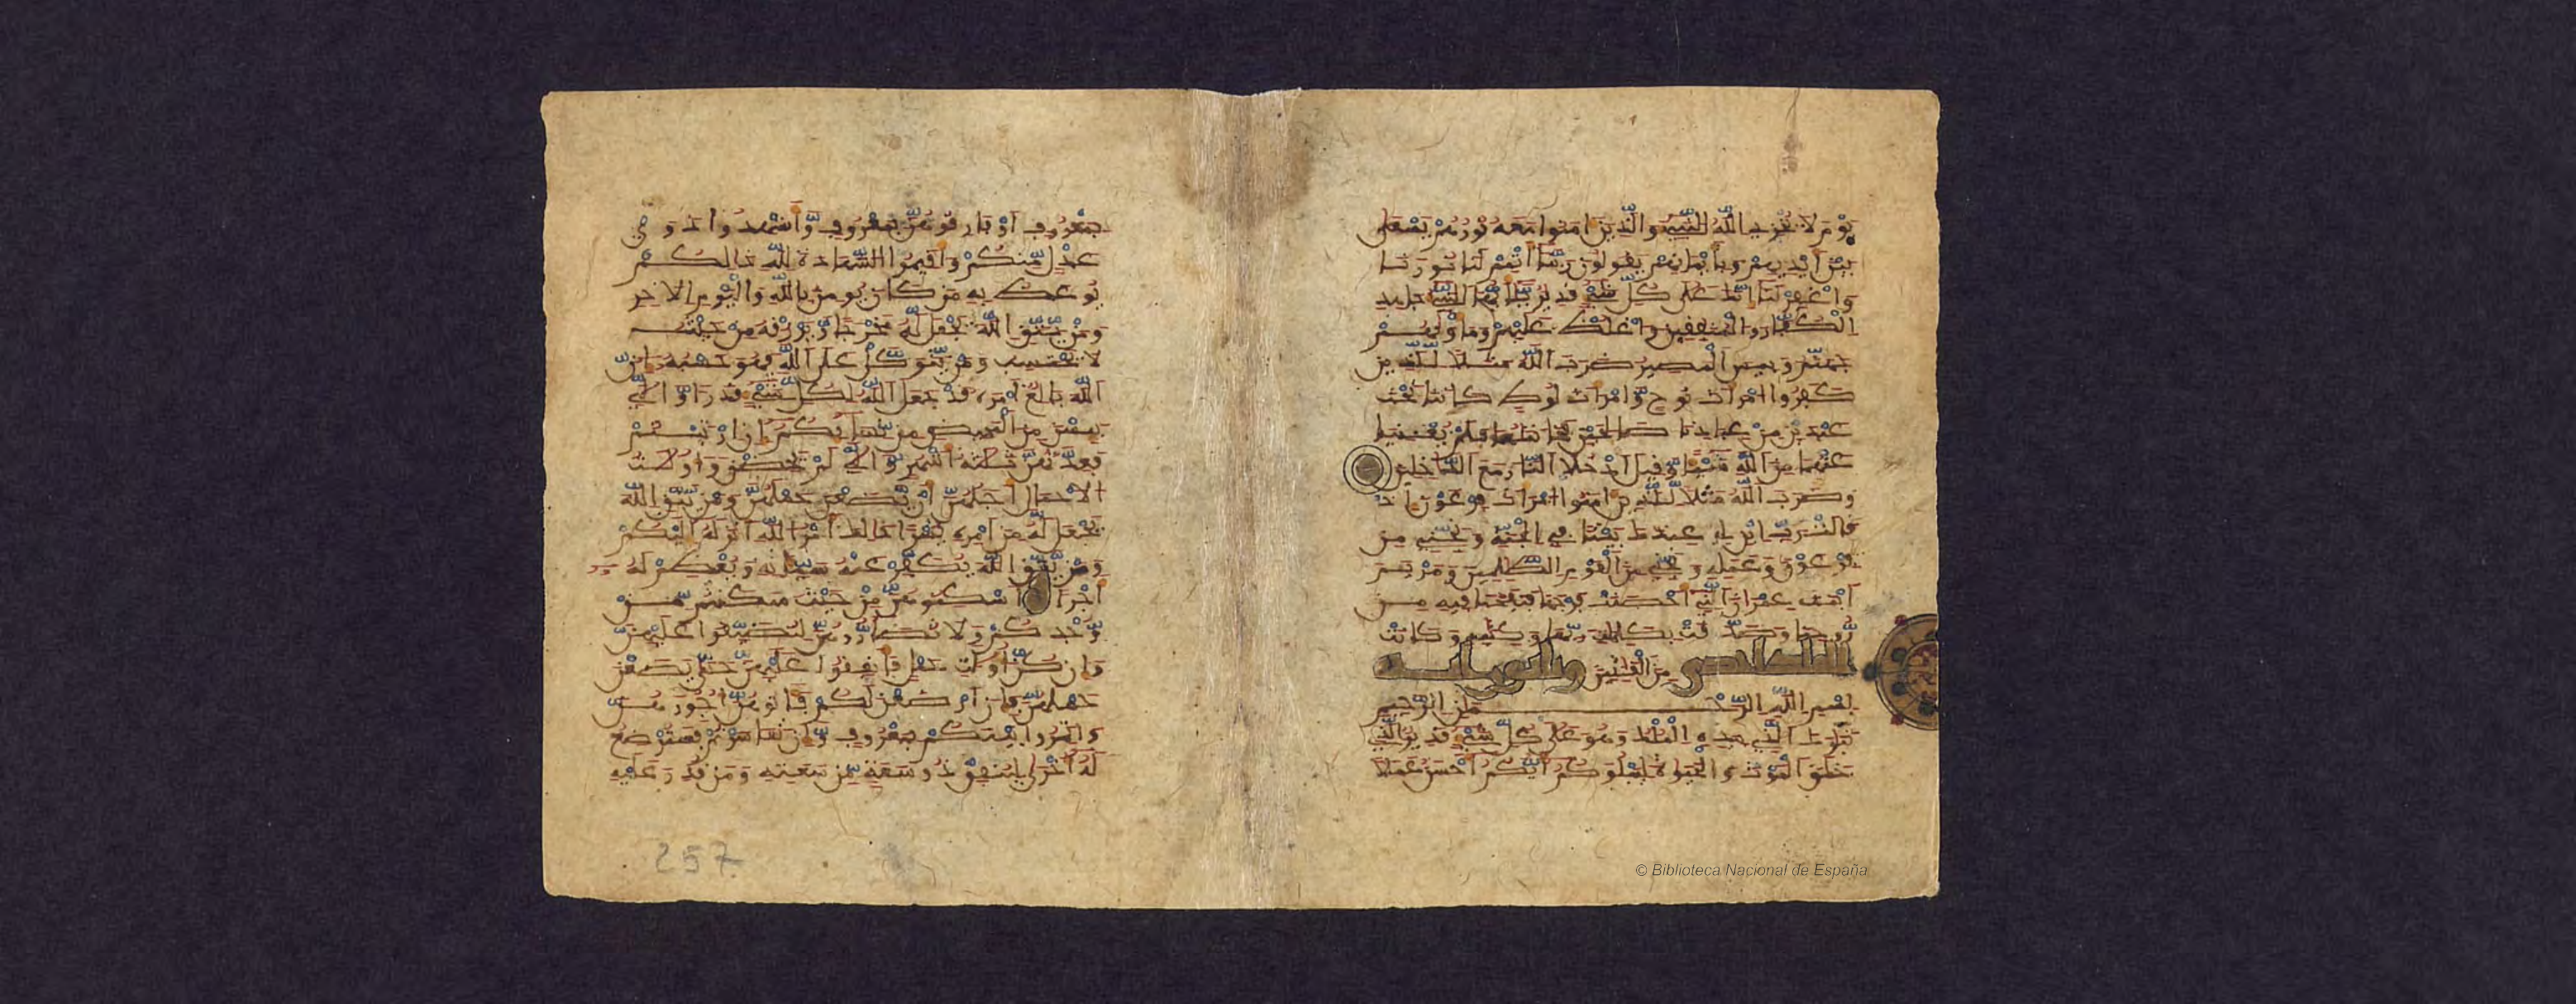 يوم لا يخزي الله النبي والذين امنوا معه نورهم يسعى
بين ايديهم وبايمانهم يقولون ربنا اتمم لنا نورنا
واغفر لنا انك على كل شيء قدير يايها النبي جهد
الكفار والمنفقين واغلظ عليهم وماويهم
جهنم وبيس المصير ضرب الله مثلا للذين
كفروا امرات نوح وامرات لوط كانتا تحت
عبدين من عبادنا صالحين فخانتاهما فلم يغنيا
عنهما من الله شيئا وقيل ادخلا النار مع الداخلين
وضرب الله مثلا للذين امنوا امرات فرعون اذ
قالت رب ابن لي عندك بيتا في الجنة ونجني من
فرعون وعمله ونجني من القوم الظلمين ومريم
ابنت عمران التي احصنت فرجها فنفخنا فيه من
روحنا وصدقت بكلمت ربها وكتبه وكانت
من القنتين
بسم الله الرحمن الرحيم
تبرك الذي بيده الملك وهو على كل شيء قدير الذي
خلق الموت والحيوة ليبلوكم ايكم احسن عملا
بمعروف او فارقوهن بمعروف واشهدوا ذوي
عدل منكم واقيموا الشهادة لله ذالكم
يوعظ به من كان يومن بالله واليوم الاخر
ومن يتق الله يجعل له مخرجا ويرزقه من حيث
لا يحتسب ومن يتوكل على الله فهو حسبه ان
الله بالغ امره قد جعل الله لكل شيء قدرا والي
يئسن من المحيض من نسائكم ان ارتبتم
فعدتهن ثلثة اشهر والي لم يحضن واولات
الاحمال اجلهن ان يضعن حملهن ومن يتق الله
يجعل له من امره يسرا ذالك امر الله انزله اليكم
ومن يتق الله يكفر عنه سيئاته ويعظم له
اجرا اسكنوهن من حيث سكنتم من
وجدكم ولا تضاروهن لتضيقوا عليهن
وان كن اولت حمل فانفقوا عليهن حتى يضعن
حملهن فان ارضعن لكم فاتوهن اجورهن
واتمروا بينكم بمعروف وان تعاسرتم فسترضع
له اخرى لينفق ذو سعة من سعته ومن قدر عليه
257
© Biblioteca Nacional de España